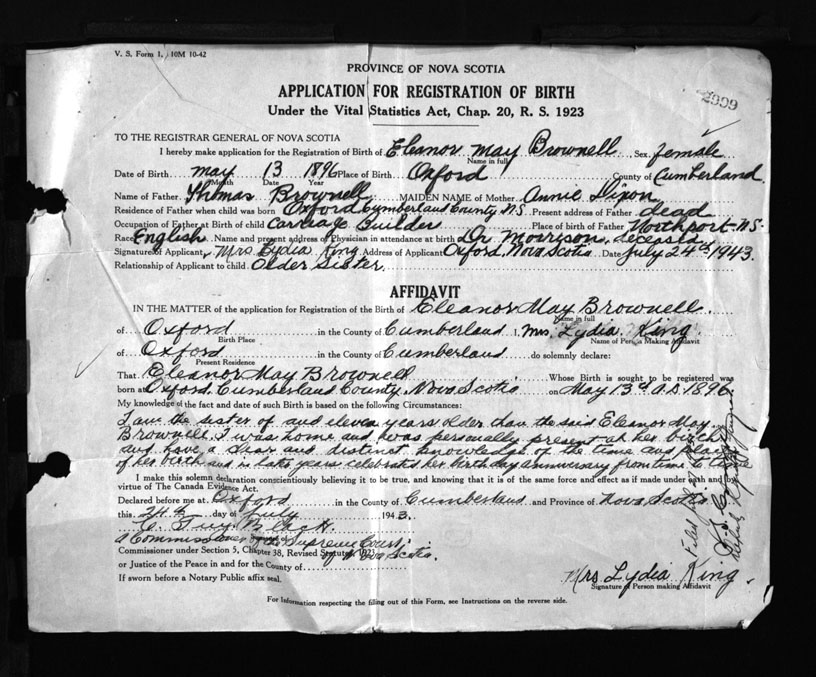 V. S. Form 1, 10M 10-42
PROVINCE OF NOVA SCOTIA
APPLICATION FOR REGISTRATION OF BIRTH
Under the Vital Statistics Act, Chap. 20, R. S. 1923
2909
TO THE REGISTRAR GENERAL OF NOVA SCOTIA
I hereby make application for the Registration of Birth of Eleanor May Brownell Sex female
Name in full
Date of Birth May 13 1896 Place of Birth Oxford County of Cumberland
Month Date Year
Name of Father Thomas Brownell MAIDEN NAME of Mother Annie Dixon
Residence of Father when child was born Oxford Cumberland County N.S. Present address of Father dead
Occupation of Father at Birth of child Carriage Builder Place of birth of Father Northport N.S.
Race English Name and present address of Physician in attendance at birth Dr Morrison, deceased
Signature of Applicant Mrs Lydia King Address of Applicant Oxford, Nova Scotia Date July 24th 1943.
Relationship of Applicant to child Older Sister.
AFFIDAVIT
IN THE MATTER of the application for Registration of the Birth of Eleanor May Brownell.
Name in full
of Oxford in the County of Cumberland I, Mrs. Lydia King.
Birth Place Name of Person Making Affidavit
of Oxford in the County of Cumberland do solemnly declare:
Present Residence
That Eleanor May Brownell Whose Birth is sought to be registered was
born at Oxford Cumberland County, Nova Scotia on May 13th A.D. 1896
My knowledge of the fact and date of such Birth is based on the following Circumstances:
I am the sister of and eleven years older than the said Eleanor May
Brownell. I was home and was personally present at her birth
and have a clear and distinct knowledge of the time and place
of her birth and in later years celebrated her birthday anniversary from time to time
I make this solemn declaration conscientiously believing it to be true, and knowing that it is of the same force and effect as if made under oath and by
virtue of The Canada Evidence Act.
Declared before me at Oxford in the County of Cumberland and Province of Nova Scotia
this 24th day of July 1943.
Black
A Commissioner of the Supreme Court
of Nova Scotia.
Commissioner under Section 5, Chapter 38, Revised Statutes 1923
or Justice of the Peace in and for the County of
If sworn before a Notary Public affix seal.
Mrs Lydia King.
Signature of Person making Affidavit
For Information respecting the filling out of this Form, see Instructions on the reverse side.